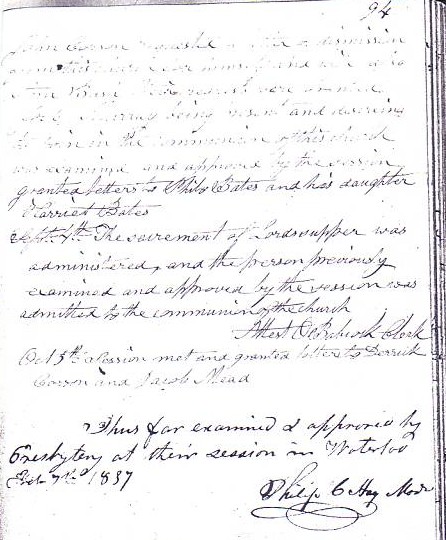 94
John Corson requested a letter of dismission
from this church for himself and wife
being present and desiring
to join in the communion of this church
was examined and approved by the session
granted letters to Philo Bates and his daughter
Harriet Bates
Sept. 4th The sacrement of Lordssupper was
administered, and the person previously
examined and approved by the session was
admitted to the communion of the church
Attest O Babcock Clerk
Oct 5th Session met and granted letters to Derrick
Corson and Jacob Mead
Thus far examined & approved by
Presbytery at their session in Waterloo
Feb 7th 1837
Philip C Hay Mod